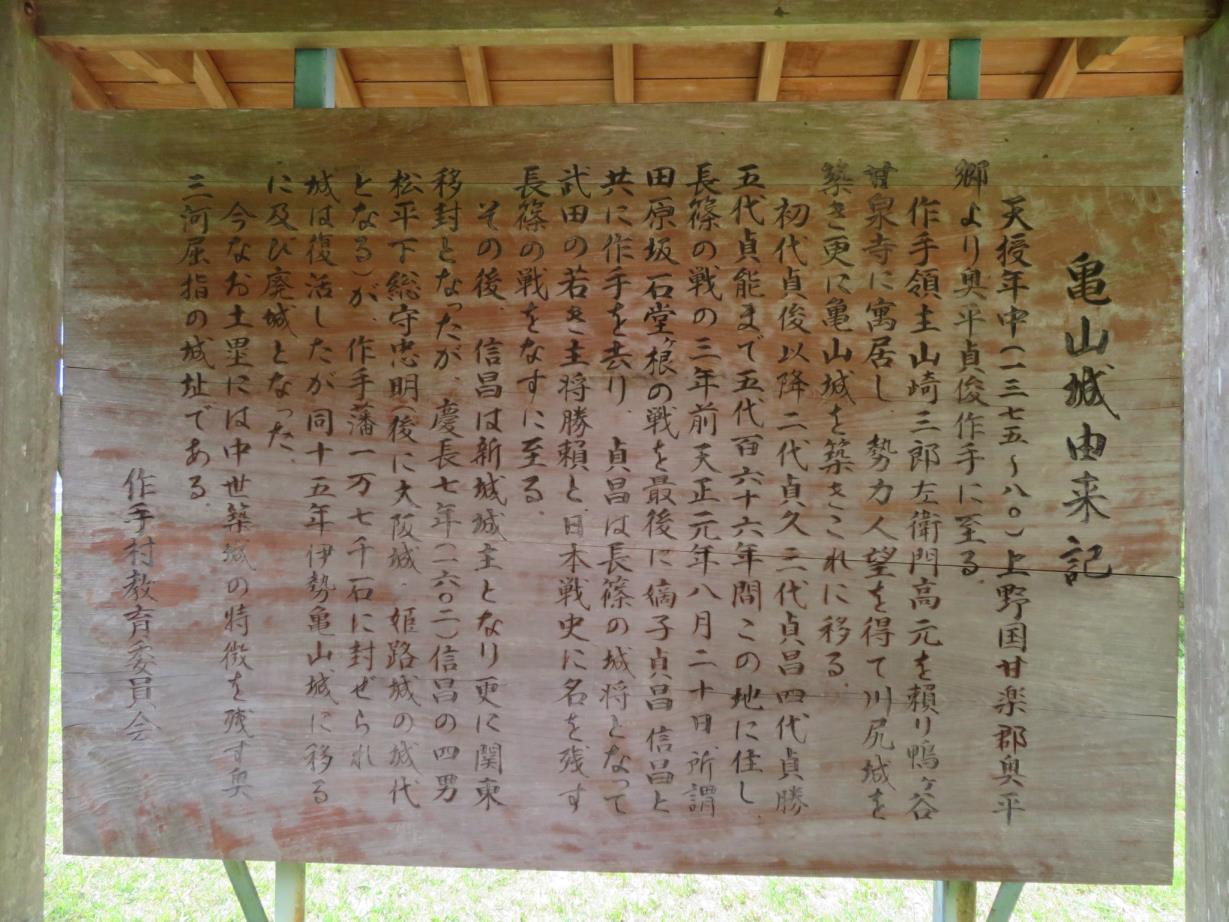 亀山城由来記
天授年中(一三七五～八〇)上野国甘楽郡奥平
郷より奥平貞俊作手に至る。
作手領主山崎三郎左衛門高元を頼り鴨ヶ谷
甘泉寺に寓居し、勢力人望を得て川尻城を
築き更に亀山城を築きこれに移る。
初代貞俊以降二代貞久三代貞昌四代貞勝
五代貞能まで五代百六十六年間この地に住し、
長篠の戦の三年前天正元年八月二十日所謂
田原坂石堂ヶ根の戦を最後に嫡子貞昌信昌と
共に作手を去り、貞昌は長篠の城将となって
武田の若き主将勝頼と、日本戦史に名を残す
長篠の戦をなすに至る。
その後、信昌は新城城主となり更に関東
移封となったが、慶長七年(一六〇二)信昌の四男
松平下総守忠明(後に大阪城、姫路城の城代
となる)が、作手藩一万七千石に封ぜられ
城は復活したが同十五年伊勢亀山城に移る
に及び廃城となった。
今なお土塁には中世築城の特徴を残す奥
三河屈指の城址である。
作手村教育委員会